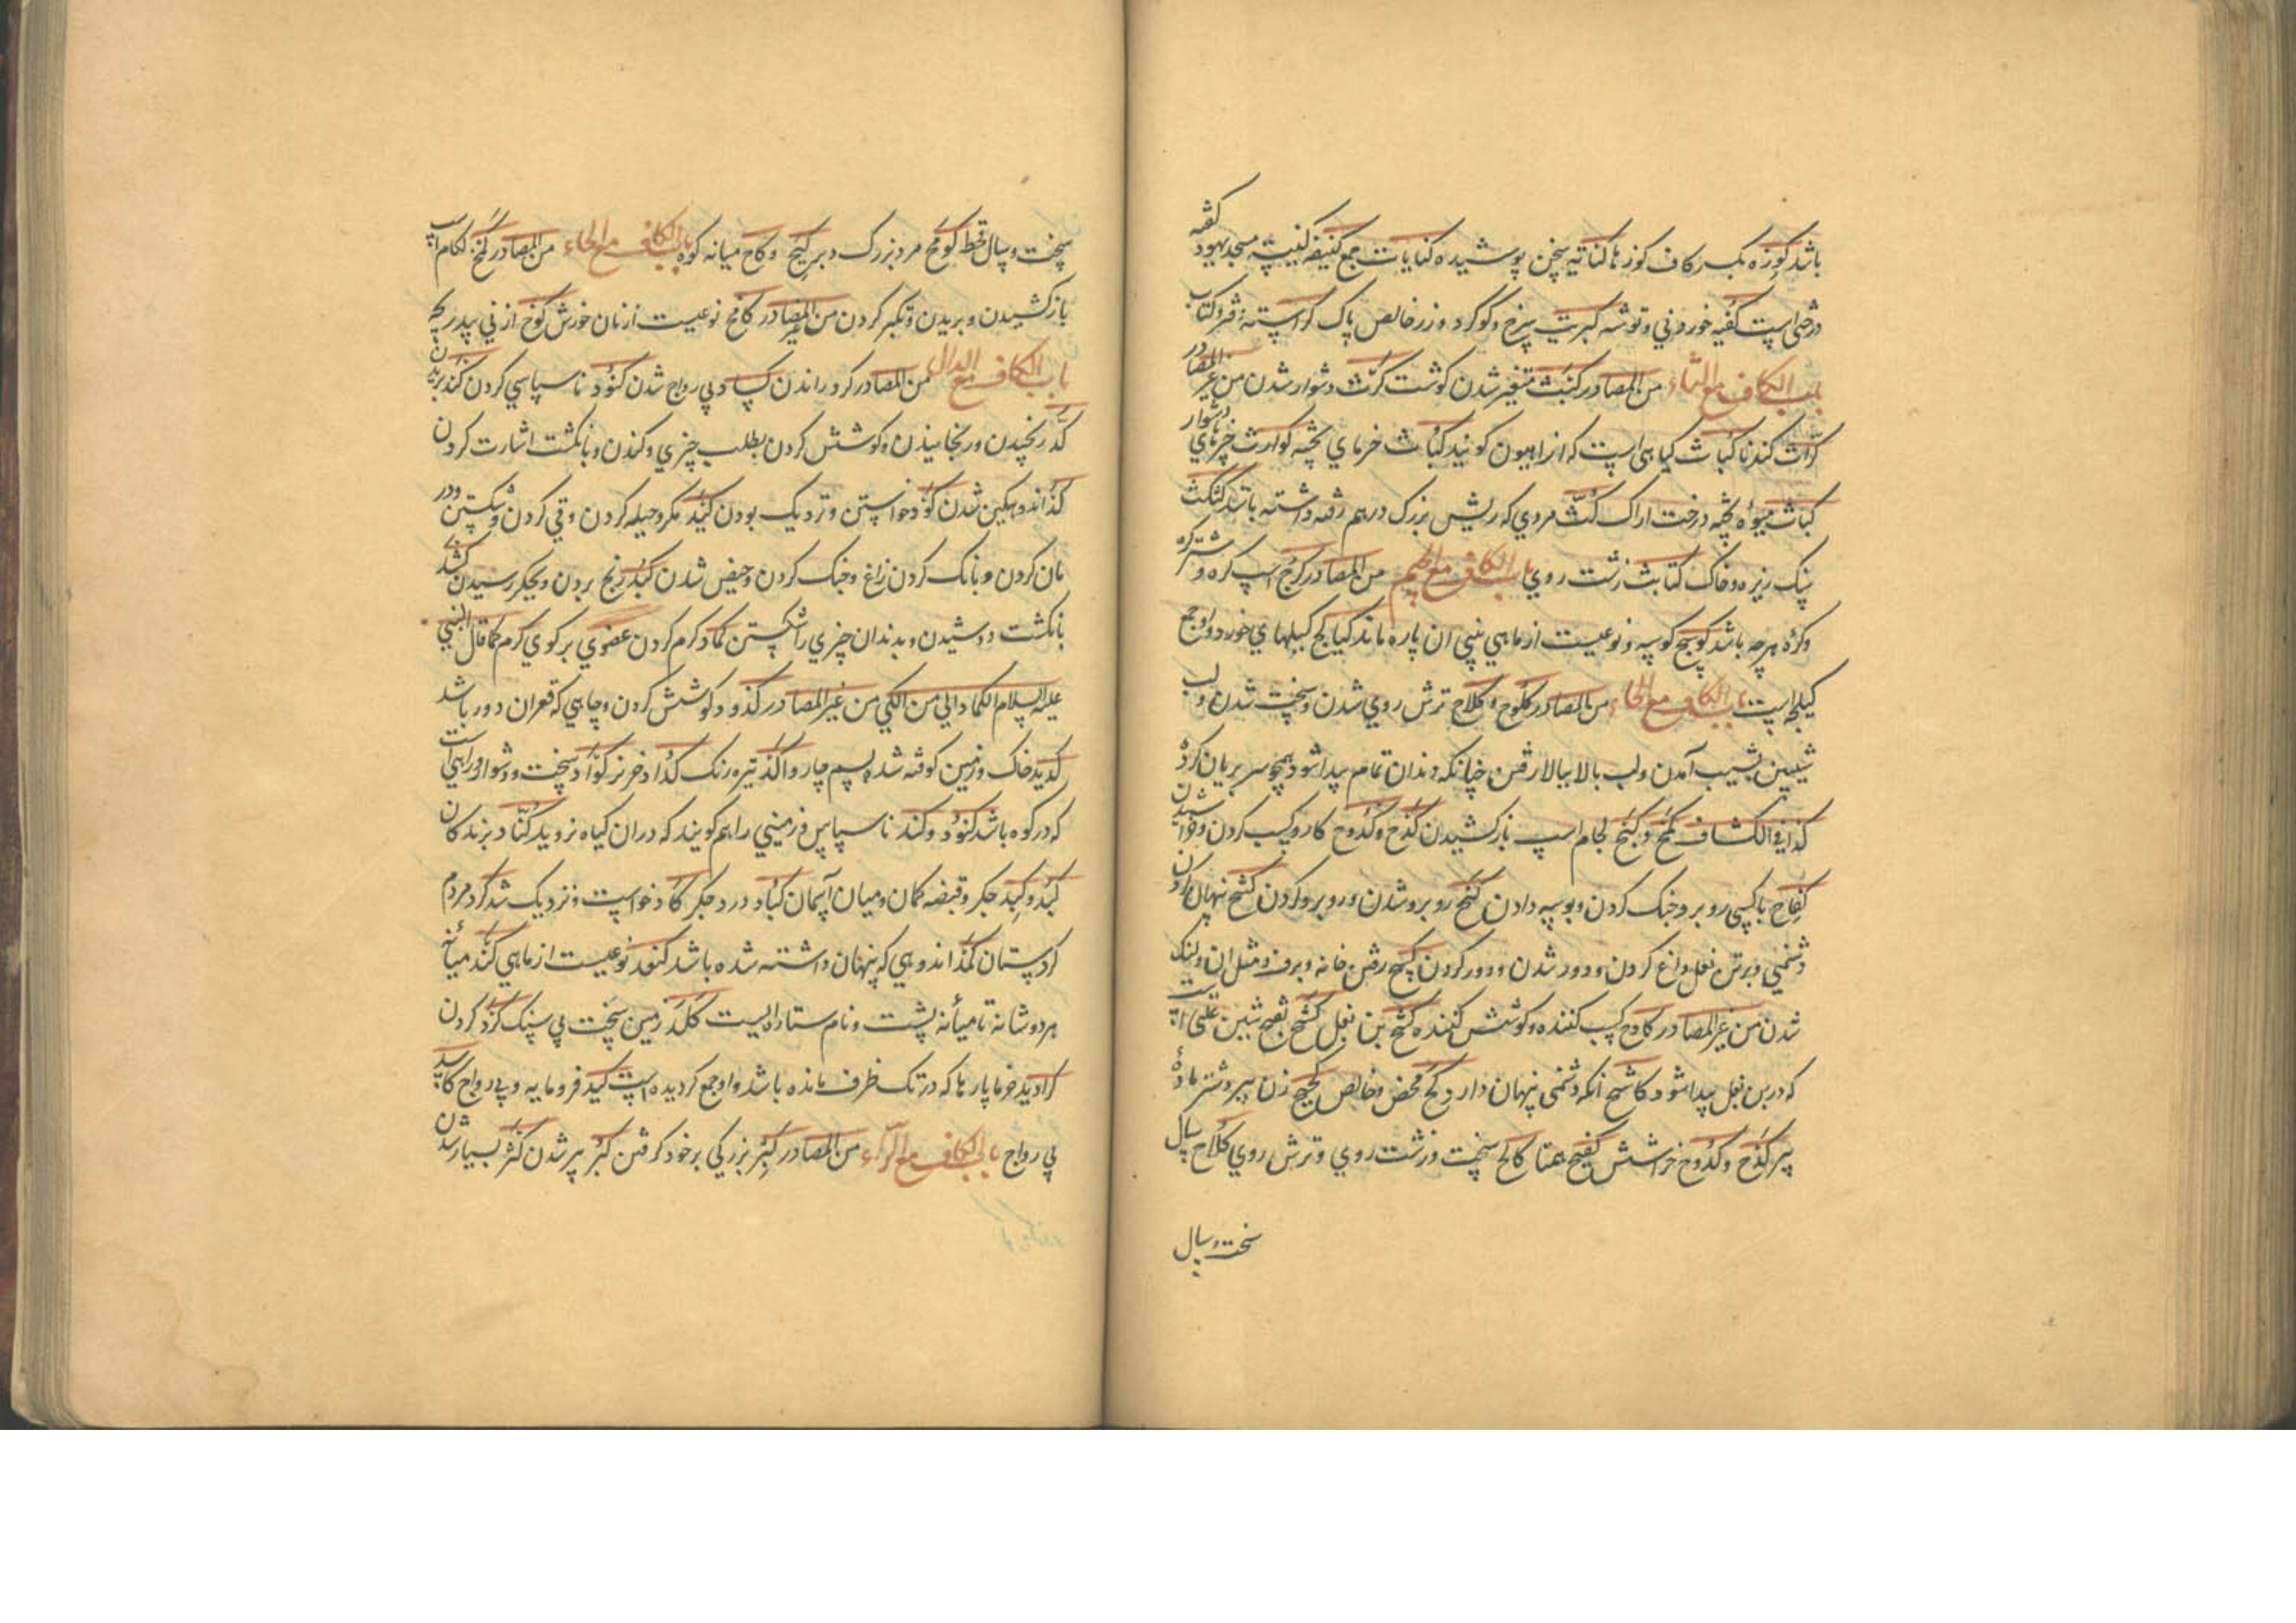 باشد کوزه بکسر کاف کوزها کنایة سخن پوشیده کنایات جمع کنیفه کنیسه مسجد یهود کفه
درختی است کفیه خوردنی و توشه کبریت سرخ و کوکرد و زر خالص پاک کراسته دفتر و کتاب
باب الکاف مع الثاء من المصادر کبث متغیر شدن کوشت کرث دشوار شدن من غیر المصادر
کراث کندنا کباث کیاهی است که انرا کویند کباث خرمای پخته کوارث چیزهای دشوار
کباث میوه پخته درخت اراک کث مردی که ریش بزرک درهم رفته داشته باشد کثکث
سنک ریزه و خاک زشت روی باب الکاف مع الجیم من المصادر کرج اسپ کره و شترکره
و کره هرچه باشد کوسج کوسه و نوعیست از ماهی بینی ان پاره ماند کیالج کیلهای خورد و او جمع
کیلجه است باب الکاف مع الحاء من المصادر کلوح و کلاح ترش روی شدن و سخت شدن و لب
شیبین بشیب آمدن و لب بالا ببالا رفتن چنانکه دندان تمام پیدا شود همچو سر بریان کرده
کذا فی الکشاف کمح و کبح لجام اسپ بازکشیدن کدح و کدوح کار و کسب کردن و خراشیدن
کفاح باکسی روبرو جنک کردن و بوسه دادن کفح روبرو شدن و روبرو کردن کشح پنهان کردن
دشمنی و بر تن نعل داغ کردن و دور شدن و دور کردن کسح رفتن خانه و برف و مثل ان و لنک
شدن من غیر المصادر کادح کسب کننده و کوشش کننده کشح بن بغل کشح بفتح شین علتی است
که در بن بغل پیدا شود کاشح انکه دشمنی پنهان دارد کح محض و خالص کحکح زن پیر و شتر ماده
پیر کدح و کدوح خراشش کفیح همتا کالح سخت و زشت روی و ترش روی کلاح سال
سخت و سال
سخت و سال قحط کومح مرد بزرک دبر کیح و کاح میانه کوه باب الکاف مع الخاء من المصادر کمخ لکام اسپ
بازکشیدن و بریدن و تکبر کردن من غیر المصادر کامخ نوعیست از نان خورش کوخ از نی پدر یچه
باب الکاف مع الدال من المصادر کرد راندن کساد بی رواج شدن کنود ناسپاسی کردن کند بریدن
کد رنجیدن و رنجانیدن و کوشش کردن بطلب چیزی و کندن و بانکشت اشارت کردن
کمد اندوهکین شدن کود خواستن و نزدیک بودن کید مکر و حیله کردن و قی کردن و شکستن و در
مان کردن و بانک کردن زاغ و جنک کردن و حیض شدن کبد رنج بردن و بجکر رسیدن کشد
بانکشت دوشیدن و بدندان چیزی را شکستن کماد کرم کردن عضوی برکوی کرم کما قال النبی
علیه السلام الکماد الی من الکی من غیر المصادر کدود کوشش کردن و چاهی که قعر ان دور باشد
کدید خاک و زمین کوفته شده بسم چاروا اکد تیره رنک کداد خر نر کؤاد سخت و دشوار و راهی است
که در کوه باشد کنود و کند ناسپاس و زمینی را هم کویند که در ان کیاه نروید کناد بزندکان
کبد و کبد جکر و قبضه کمان و میان آسمان کباد درد جکر کاد خواست و نزدیک شد کرد مردم
کردستان کمد اندوهی که پنهان داشته شده باشد کنعد نوعیست از ماهی کتد میانه
هر دو شانه تا میانه پشت و نام ستاره ایست کلد زمین سخت بی سنک کرد کردن
کرادید خرما پارها که در تک ظرف مانده باشد و او جمع کردیده است کسید فرومایه و بی رواج کاسد
بی رواج باب الکاف مع الراء من المصادر کبر بزرکی برخود کرفتن کبر پیر شدن کثر بسیار شدن